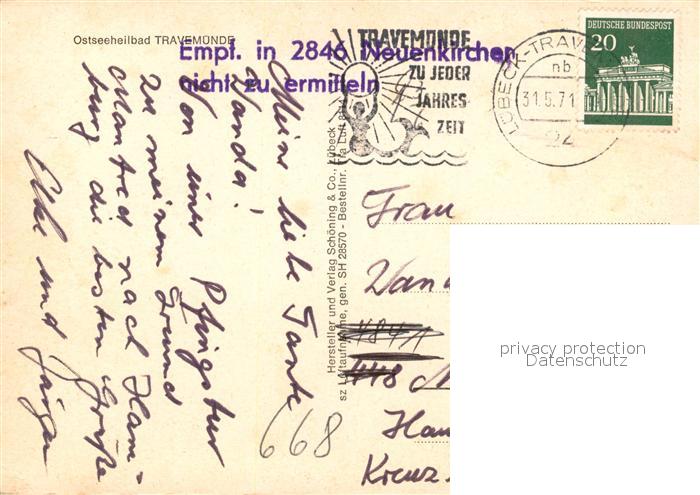 Ostseeheilbad TRAVEMÜNDE
Empf. in 2846 Neuenkirchen
nicht zu ermitteln
TRAVEMÜNDE
ZU JEDER
JAHRES-
ZEIT
LÜBECK-TRAV
nb
31.5.71
24
DEUTSCHE BUNDESPOST
20
Meine liebe Tante
Wanda!
Von einer Pfingsttour
zu meinem Freund
Manfred nach Ham-
burg die besten Grüße
Elke und Jürgen
Hersteller und Verlag Schöning & Co., Lübeck
sz Luftaufnahme, gen. SH 28570 - Bestellnr.
Frau
Wan
448
Han
Kreuz
668
privacy protection
Datenschutz